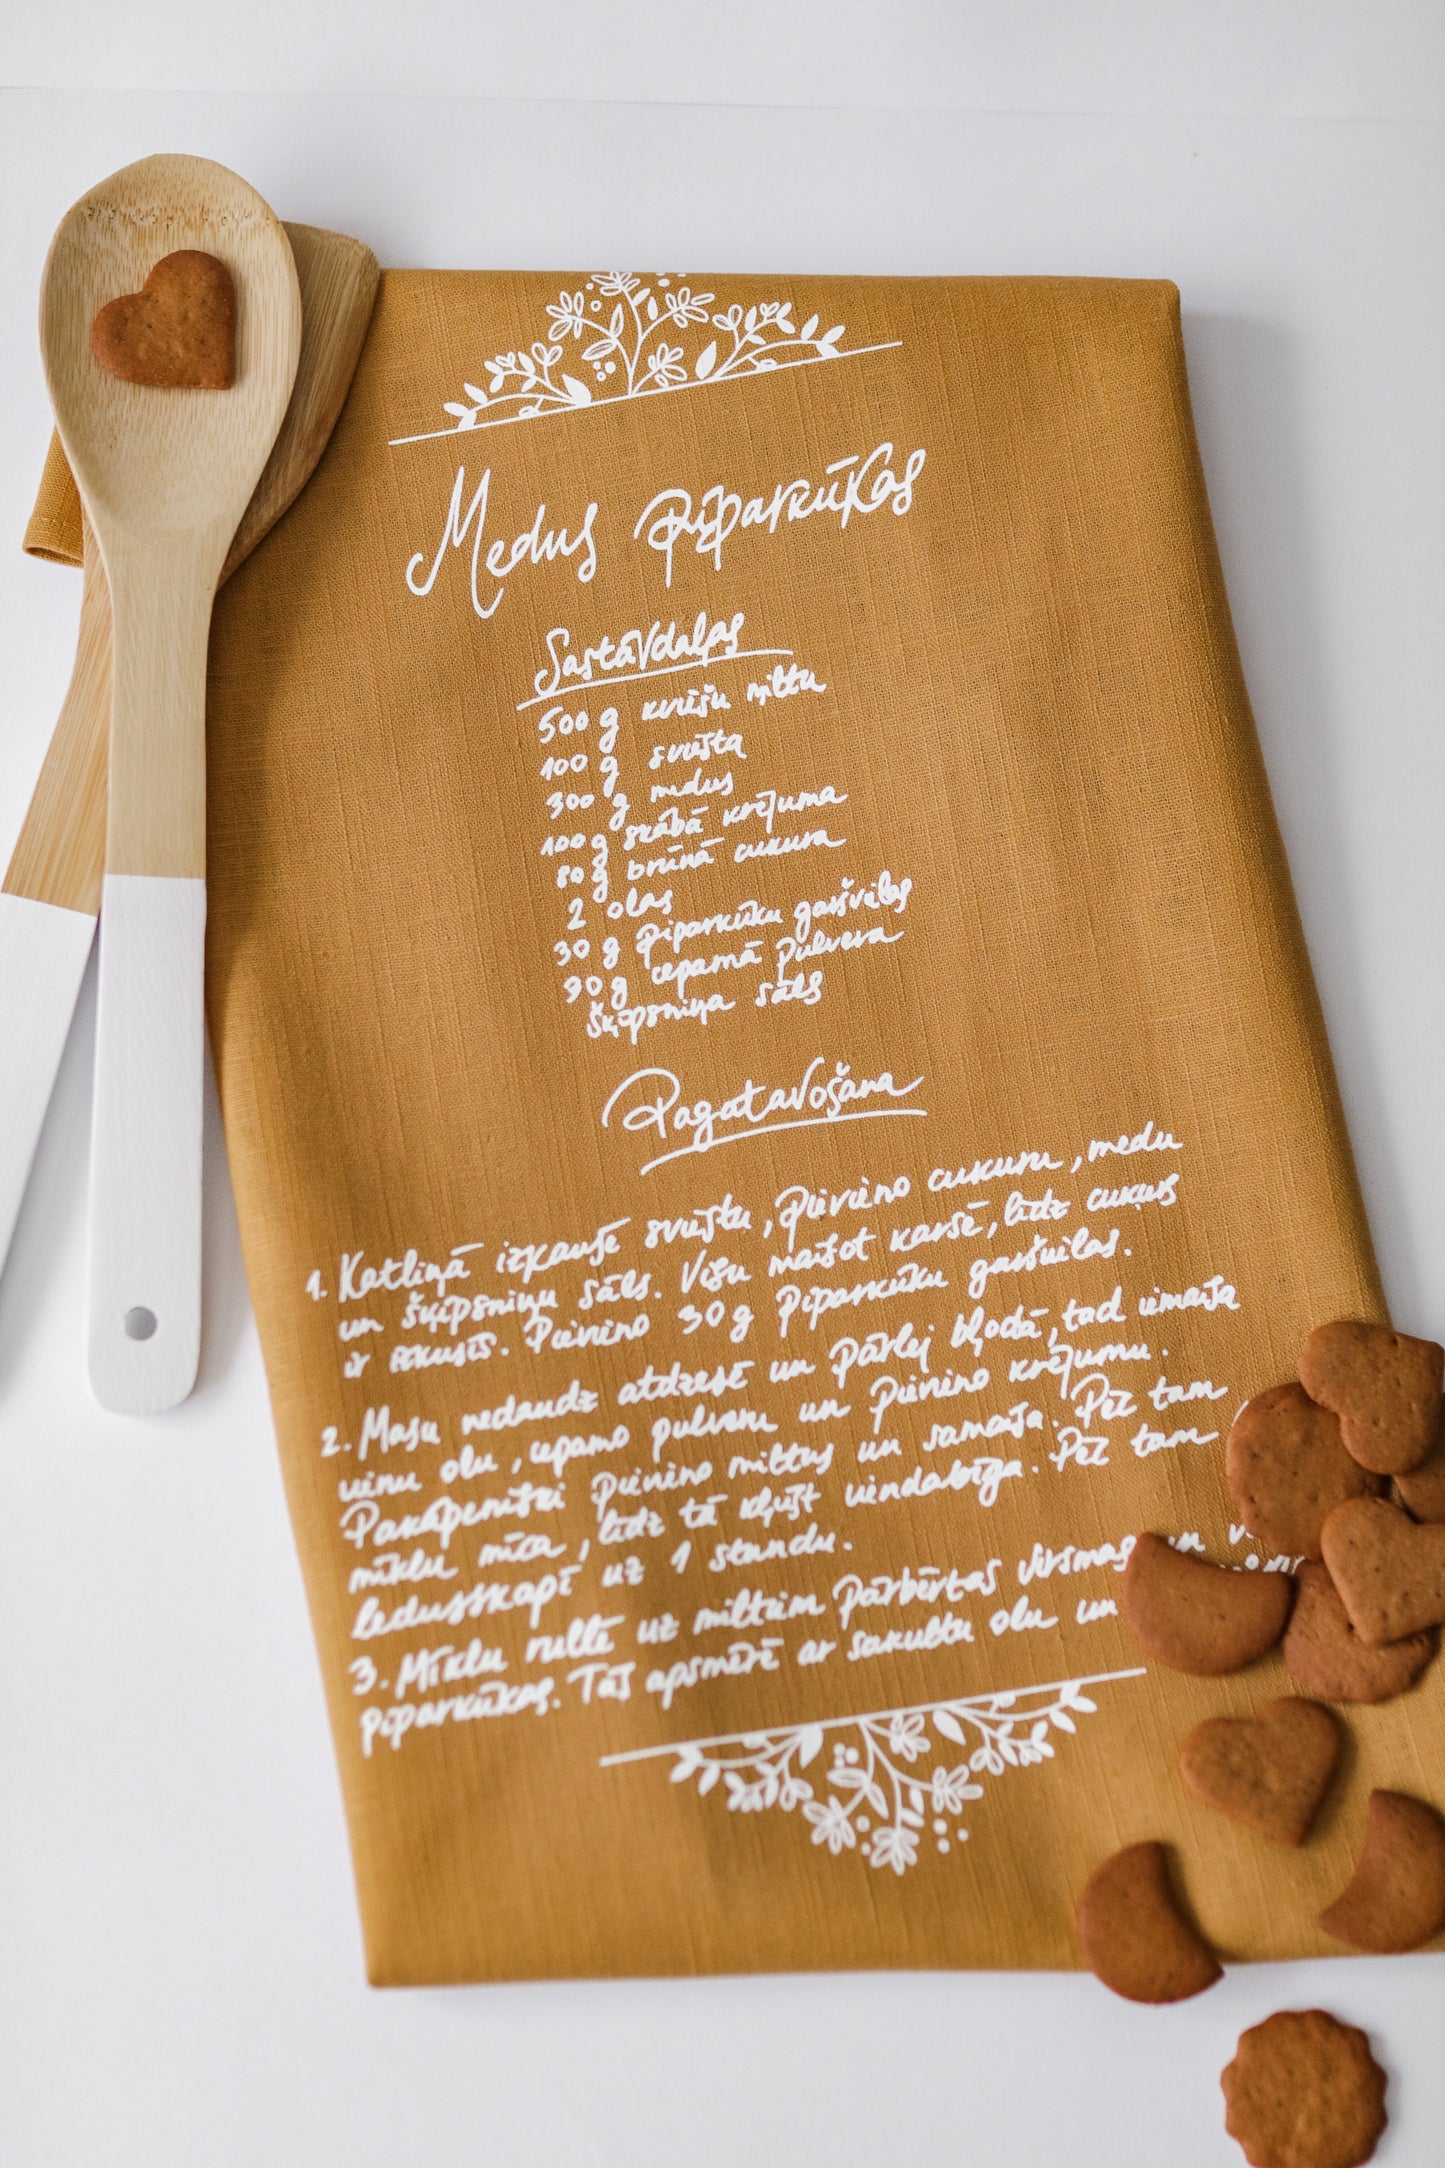 Medus piparkūkas
Sastāvdaļas
500 g kviešu miltu
100 g sviesta
300 g medus
100 g skābā krējuma
80 g brūnā cukura
2 olas
30 g piparkūku garšvielas
90 g cepamā pulvera
šķipsniņa sāls
Pagatavošana
1. Katliņā izkausē sviestu, pievieno cukuru, medu
un šķipsniņu sāls. Visu maisot karsē, līdz cukurs
ir izkusis. Pievieno 30 g piparkūku garšvielas.
2. Masu nedaudz atdzesē un pārlej bļodā, tad iemaisa
vienu olu, cepamo pulveru un pievieno krējumu.
Pakāpeniski pievieno miltus un samaisa. Pēc tam
mīklu mīca, līdz tā kļūst viendabīga. Pēc tam
ledusskapī uz 1 stundu.
3. Mīklu rullē uz miltiem pārbērtas virsmas un
piparkūkas. Tās apsmērē ar sakultu olu un